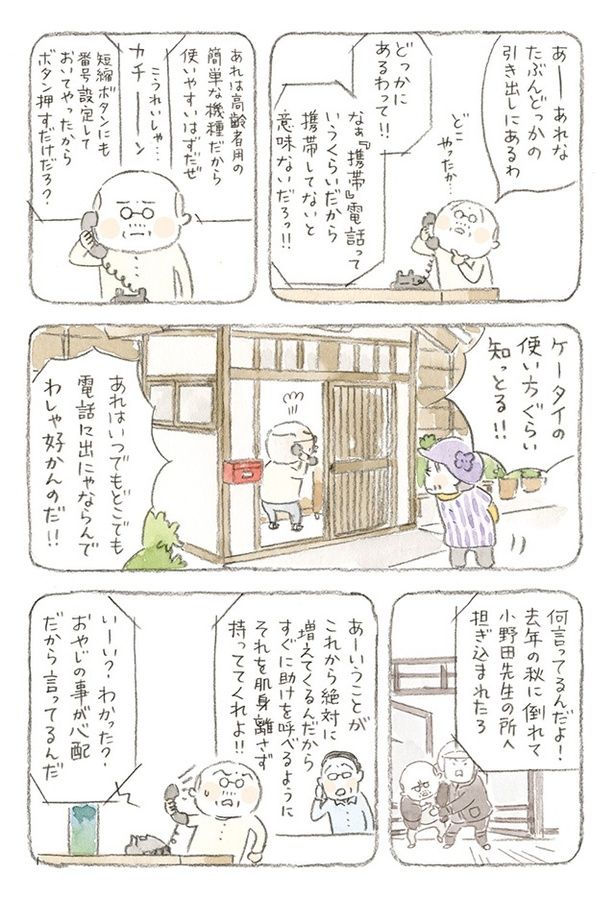 あーーあれな
たぶんどっかの
引き出しにあるわ
どこ
やったか…
どっかに
あるわって!!
なぁ『携帯』電話って
いうくらいだから
携帯してないと
意味ないだろっ!!
あれは高齢者用の
簡単な機種だから
使いやすいはずだぜ
こうれいしゃ…
カチーーン
短縮ボタンにも
番号設定して
おいてやったから
ボタン押すだけだろ?
ケータイの
使い方ぐらい
知っとる!!
あれはいつでもどこでも
電話に出にゃならんで
わしゃ好かんのだ!!
何言ってるんだよ!
去年の秋に倒れて
小野田先生の所へ
担ぎ込まれたろ
あーいうことが
これから絶対に
増えてくるんだから
すぐに助けを呼べるように
それを肌身離さず
持っててくれよ!!
いーい?わかった?
おやじの事が心配
だから言ってるんだ